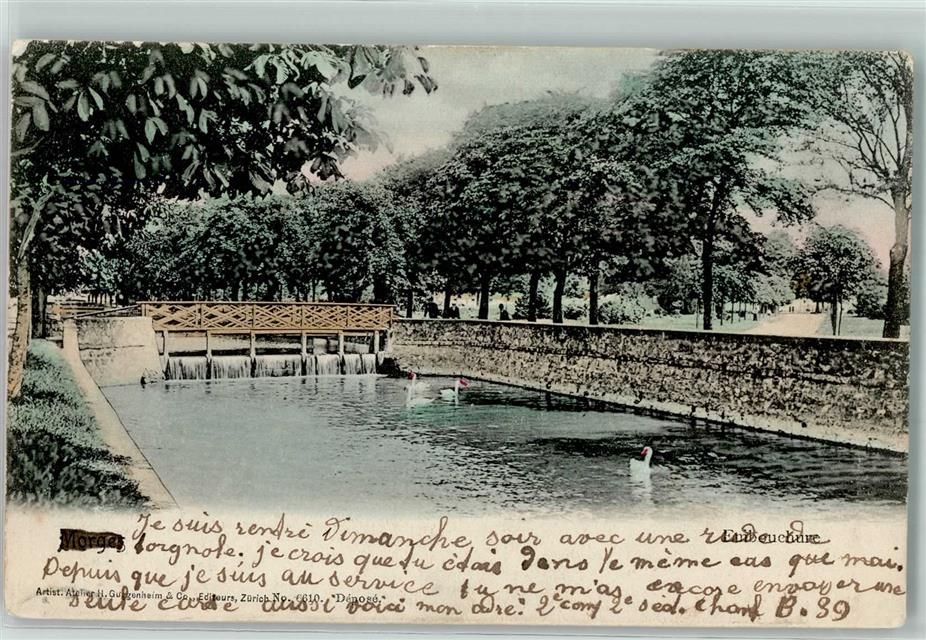 Je suis rentré Dimanche soir avec une
Morges Embouchure.
torgnole. je crois que tu étais dans le même cas que moi.
Depuis que je suis au service tu ne m'as encore envoyer une
Artist. Atelier H. Guggenheim & Co., Editeurs, Zürich No. 6610. Déposé.
petite carte aussi voici mon adre: 2e comp 2e sect. Chamb B. 39